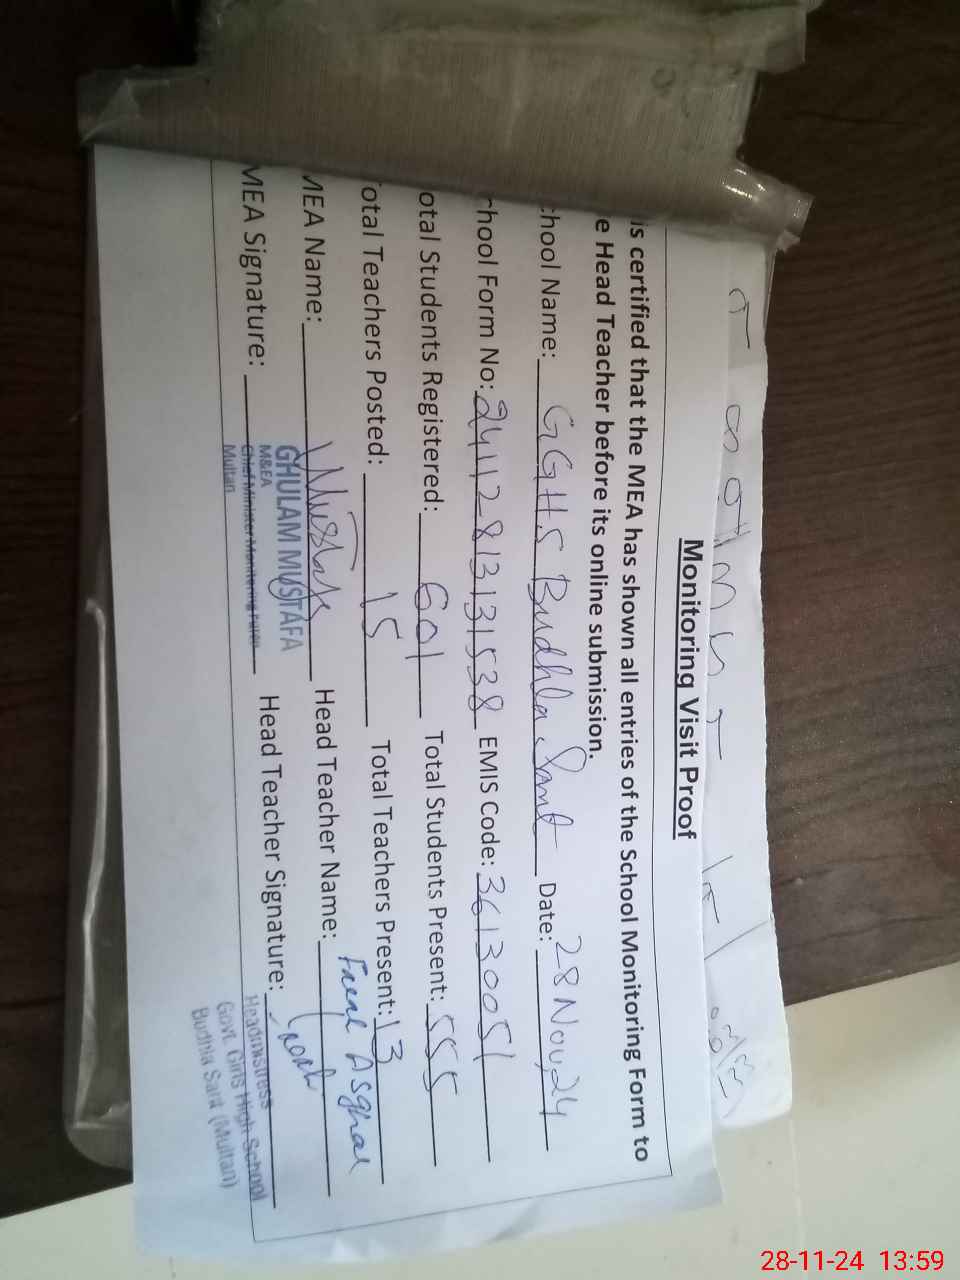 Monitoring Visit Proof
is certified that the MEA has shown all entries of the School Monitoring Form to
e Head Teacher before its online submission.
hool Name: GGHS Budhla Sant Date: 28 Nov, 24
chool Form No: 24112813131538 EMIS Code: 36130051
otal Students Registered: 601 Total Students Present: 555
otal Teachers Posted: 15 Total Teachers Present: 13
MEA Name: Mustafa Head Teacher Name: Asghar
MEA Signature: Head Teacher Signature:
GHULAM MUSTAFA
M&EA
Chief Minister Monitoring Force
Multan
Headmistress
Govt. Girls High School
Budhla Sant (Multan)
28-11-24 13:59